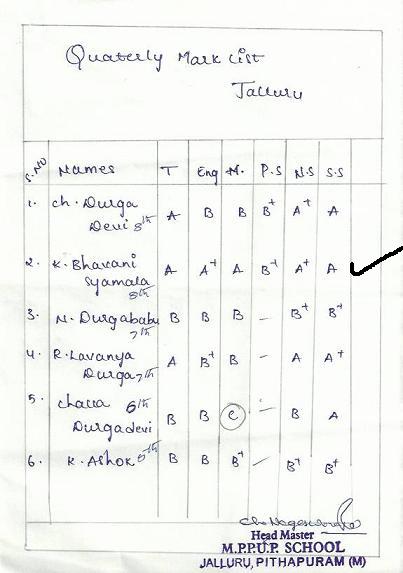 Quaterly Mark List
Jalluru
S.NO Names T Eng M. P.S N.S S.S
1. ch. Durga Devi 8th A B B B+ A+ A
2. K. Bhavani Syamala 8th A A+ A B+ A+ A
3. N. Durgababu 7th B B B - B+ B+
4. R. Lavanya Durga 7th A B+ B - A A+
5. challa 6th Durgadevi B B C - B A
6. K. Ashok 5th B B B+ - B+ B+
Head Master
M.P.P.U.P. SCHOOL
JALLURU, PITHAPURAM (M)